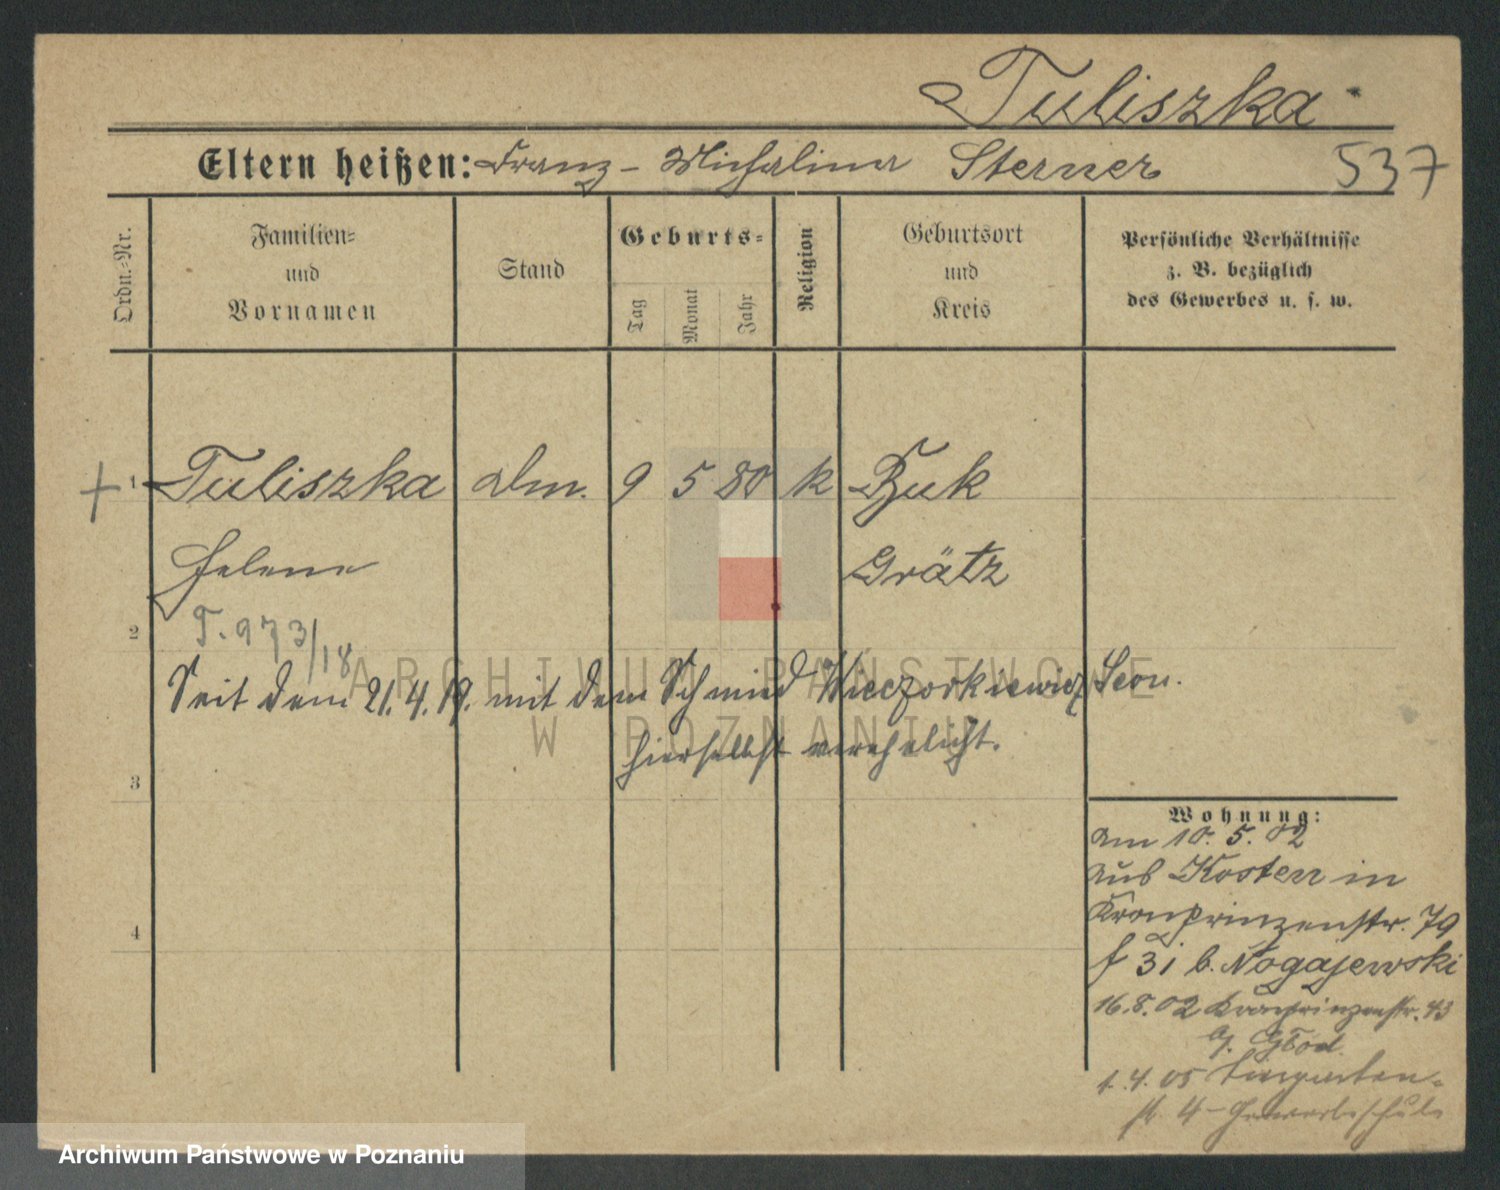 Tuliszka
Eltern heißen: Franz - Michalina Sterner 537
Ordn.-Nr.
Familien-
und
Vornamen
Stand
Geburts-
Tag
Monat
Jahr
Religion
Geburtsort
und
Kreis
Persönliche Verhältnisse
z. B. bezüglich
des Gewerbes u. s. w.
+ 1 Tuliszka 9 5 80 k Buk
Helene Grätz
2 T. 973/18
Seit dem 21.4.19. mit dem Schmied Wieczorkiewicz Leon.
hierselbst verehelicht.
3
4
Wohnung:
am 10. 5. 02
aus Kosten in
Kronprinzenstr. 79
b. Nogajewski
16.8.02 Kronprinzenstr. 43
1.4.05 Tiergarten-
str. 4 - Gewerbeschule
ARCHIWUM PAŃSTWOWE
W POZNANIU
Archiwum Państwowe w Poznaniu